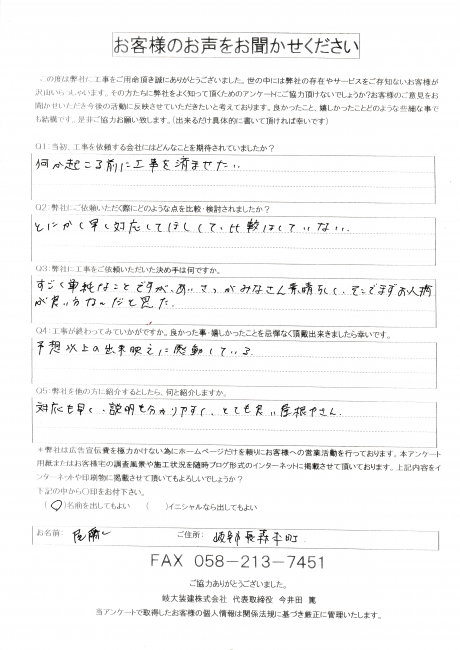 お客様のお声をお聞かせください
この度は弊社に工事をご用命頂き誠にありがとうございました。世の中には弊社の存在やサービスをご存知ないお客様が
沢山いらっしゃいます。その方たちに弊社をよく知って頂くためのアンケートにご協力頂けないでしょうか?お客様のご意見をお
聞かせいただき今後の活動に反映させていただきたいと考えております。良かったこと、嬉しかったことどのような些細な事で
も結構です、是非ご協力お願い致します。(出来るだけ具体的に書いて頂ければ幸いです)
Q1:当初、工事を依頼する会社にはどんなことを期待されていましたか?
何か起こる前に工事を済ませたい
Q2:弊社にご依頼いただく際にどのような点を比較・検討されましたか?
とにかく早く対応してほしくて、比較はしていない。
Q3:弊社に工事をご依頼いただいた決め手は何ですか。
すごく単純なことですが、あいさつがみなさん素晴らしく、そこでまずお人柄
が良い方なんだと思った。
Q4:工事が終わってみていかがですか。良かった事・嬉しかったことを忌憚なく頂戴出来きましたら幸いです。
予想以上の出来映えに感動している。
Q5:弊社を他の方に紹介するとしたら、何と紹介しますか。
対応も早く、説明も分かりやすく、とても良い屋根やさん。
*弊社は広告宣伝費を極力かけない為にホームページだけを頼りにお客様への営業活動を行っております。本アンケート
用紙またはお客様宅の調査風景や施工状況を随時ブログ形式のインターネットに掲載させて頂いております。上記内容をイ
ンターネットや印刷物に掲載させて頂いてもよろしいでしょうか?
下記の中から〇印をお付下さい。
(〇)名前を出してもよい ( )イニシャルなら出してもよい
お名前: ご住所:
FAX 058-213-7451
ご協力ありがとうございました。
岐大装建株式会社 代表取締役 今井田 篤
当アンケートで取得したお客様の個人情報は関係法規に基づき厳正に管理いたします。